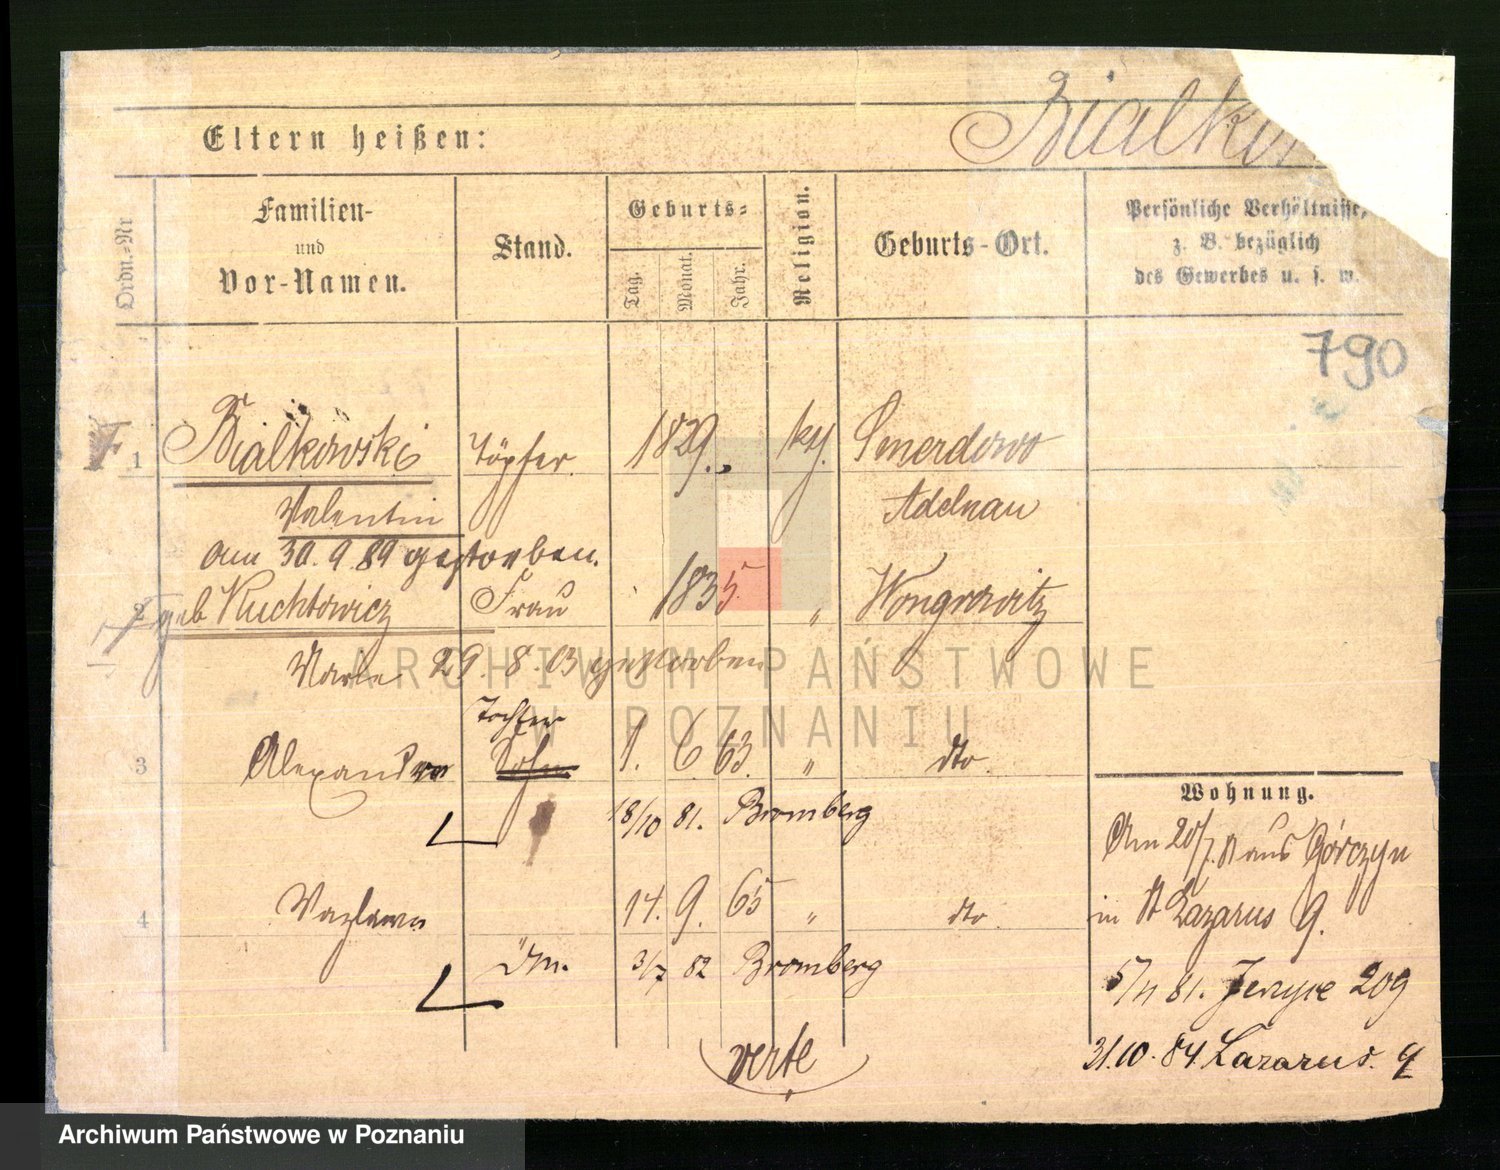 Eltern heißen:
Bialkow
Ordn.-Nr
Familien-
und
Vor-Namen.
Stand.
Geburts-
Tag.
Monat.
Jahr.
Religion.
Geburts-Ort.
Persönliche Verhältnisse,
z. B. bezüglich
des Gewerbes u. s. w.
790
1 Bialkowski Töpfer. 1829. kth. Smerdowo
Valentin Adelnau
am 30. 9. 89 gestorben.
2 geb Kuchtowicz Frau 1835 " Wongrowitz
Marie 29. 8. 03 gestorben
ARCHIWUM PAŃSTWOWE
W POZNANIU
Tochter
3 Alexandra Sohn 1. 6 63. " dto
18/10 81. Bromberg
4 14. 9. 65 " dto
3/7 82 Bromberg
verte
Wohnung.
Am 20/7. 81 aus Górczyn
in St Lazarus 9.
5/11 81. Jerzyce 209
31.10. 84 Lazarus.
Archiwum Państwowe w Poznaniu